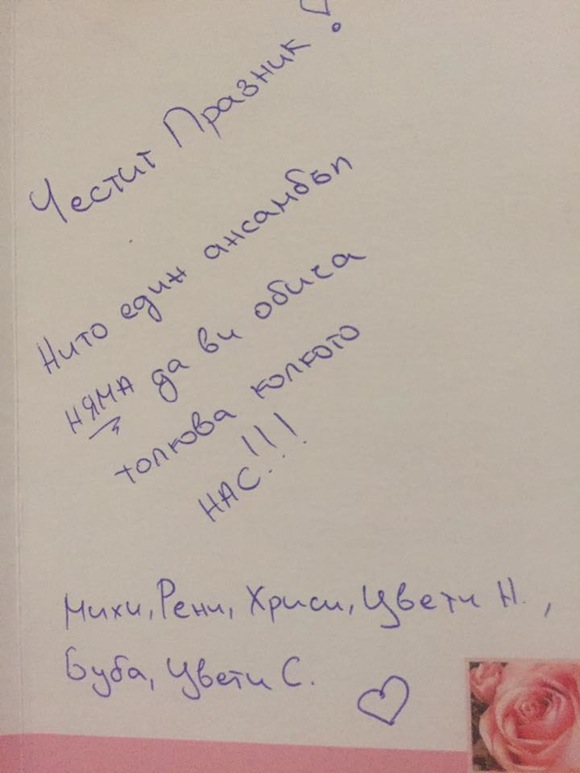 Честит Празник!
Нито един ансамбъл
НЯМА да ви обича
толкова колкото
НАС!!!
Михи, Рени, Хриси, Цвети Н.,
Буба, Цвети С.